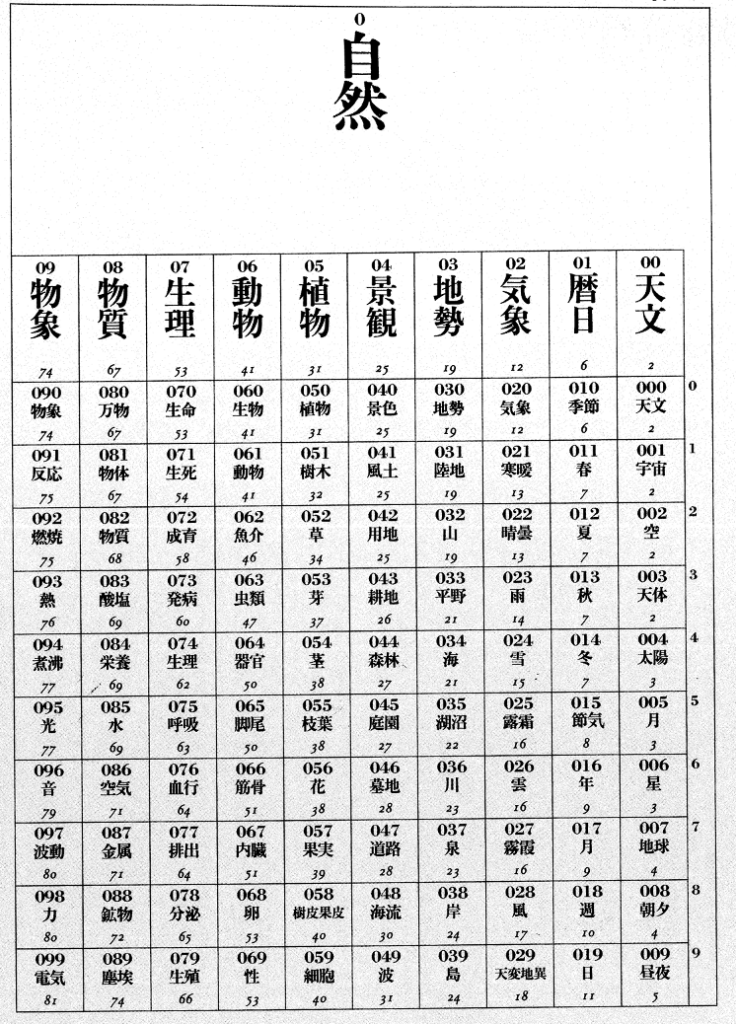 0
自然
00
天文
2
01
暦日
6
02
気象
12
03
地勢
19
04
景観
25
05
植物
31
06
動物
41
07
生理
53
08
物質
67
09
物象
74
0
000
天文
2
010
季節
6
020
気象
12
030
地勢
19
040
景色
25
050
植物
31
060
生物
41
070
生命
53
080
万物
67
090
物象
74
1
001
宇宙
2
011
春
7
021
寒暖
13
031
陸地
19
041
風土
25
051
樹木
32
061
動物
41
071
生死
54
081
物体
67
091
反応
75
2
002
空
2
012
夏
7
022
晴曇
13
032
山
19
042
用地
25
052
草
34
062
魚介
46
072
成育
58
082
物質
68
092
燃焼
75
3
003
天体
2
013
秋
7
023
雨
14
033
平野
21
043
耕地
26
053
芽
37
063
虫類
47
073
発病
60
083
酸塩
69
093
熱
76
4
004
太陽
3
014
冬
7
024
雪
15
034
海
21
044
森林
27
054
茎
38
064
器官
50
074
生理
62
084
栄養
69
094
煮沸
77
5
005
月
3
015
節気
8
025
露霜
16
035
湖沼
22
045
庭園
27
055
枝葉
38
065
脚尾
50
075
呼吸
63
085
水
69
095
光
77
6
006
星
3
016
年
9
026
雲
16
036
川
23
046
墓地
28
056
花
38
066
筋骨
51
076
血行
64
086
空気
71
096
音
79
7
007
地球
4
017
月
9
027
霧霞
16
037
泉
23
047
道路
28
057
果実
39
067
内臓
51
077
排出
64
087
金属
71
097
波動
80
8
008
朝夕
4
018
週
10
028
風
17
038
岸
24
048
海流
30
058
樹皮果皮
40
068
卵
53
078
分泌
65
088
鉱物
72
098
力
80
9
009
昼夜
5
019
日
11
029
天変地異
18
039
島
24
049
波
31
059
細胞
40
069
性
53
079
生殖
66
089
塵埃
74
099
電気
81